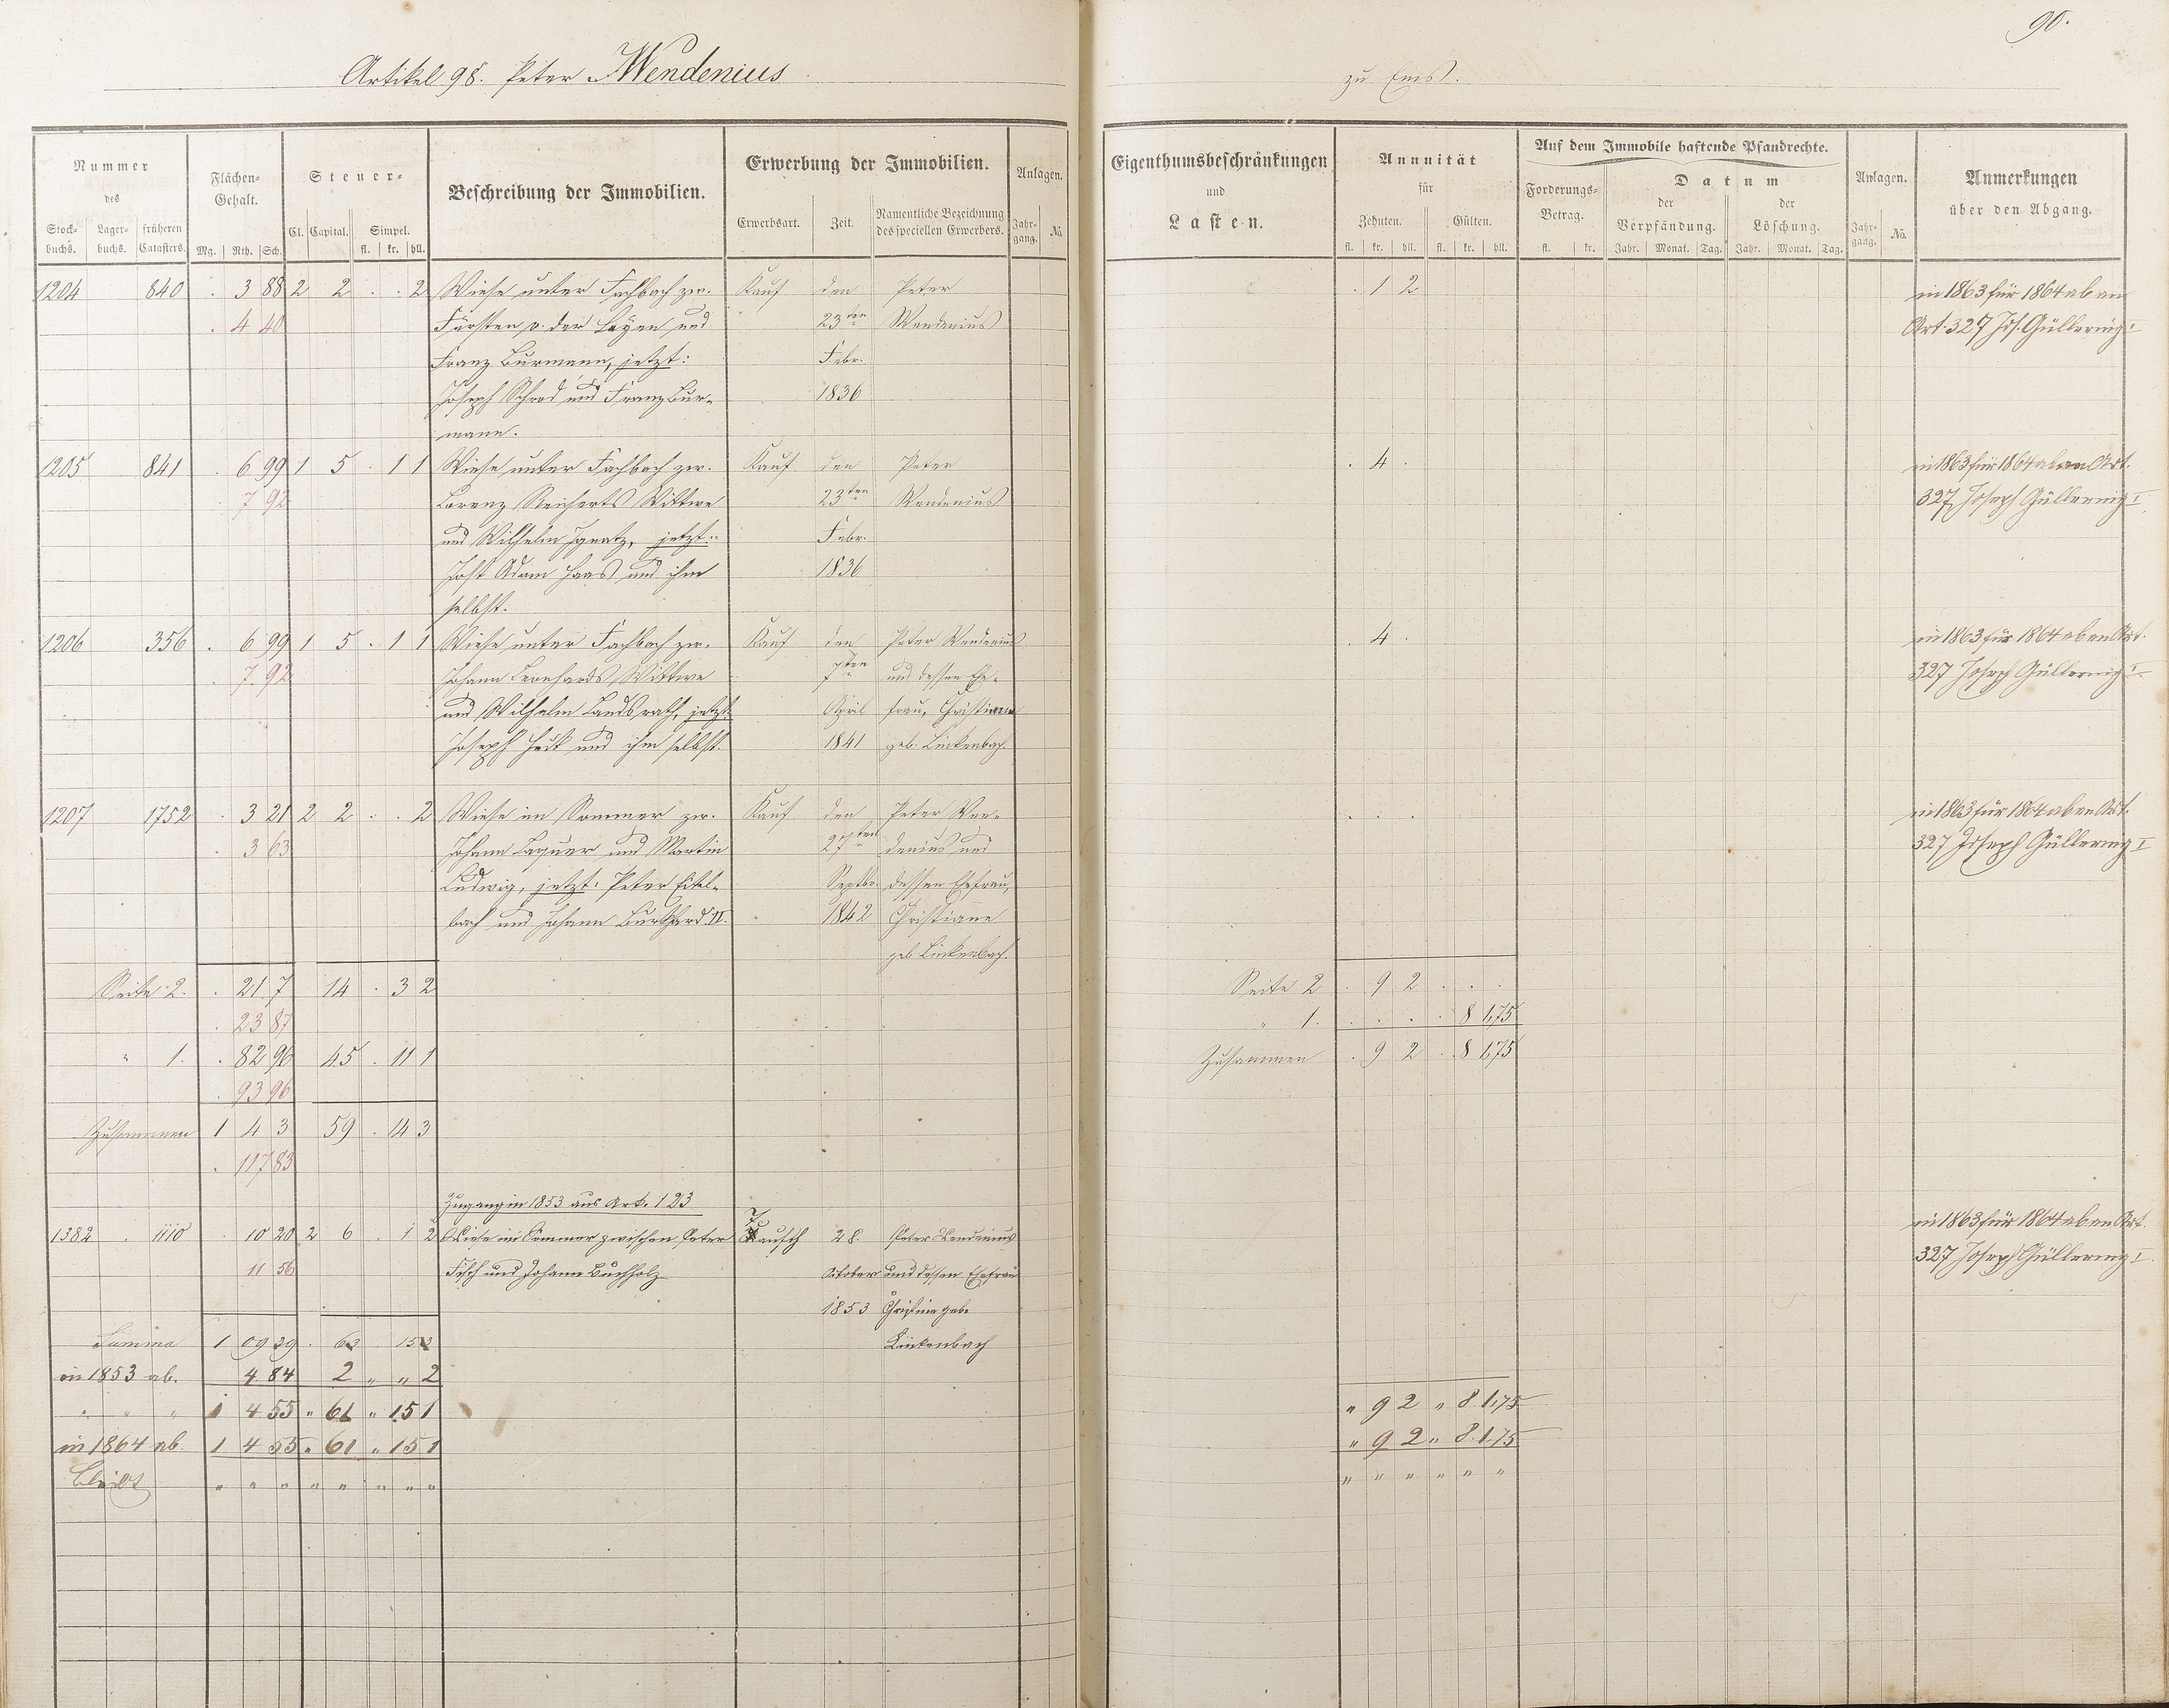 90.
Artikel 98. Peter Wendenius zu Ems.
Nummer des
Stockbuchs. Lagerbuchs. früheren Catasters.
Flächen-Gehalt.
Mg. Rth. Sch.
Steuer-
Cl. Capital. Simpel.
fl. kr. hll.
Beschreibung der Immobilien.
Erwerbung der Immobilien.
Erwerbsart. Zeit. Namentliche Bezeichnung des speciellen Erwerbers.
Anlagen.
Jahrgang. No.
Eigenthumsbeschränkungen
und
Lasten.
Annuität
für
Zehnten. Gülten.
fl. kr. hll. fl. kr. hll.
Auf dem Immobile haftende Pfandrechte.
Forderungs-Betrag.
fl. kr.
Datum
der Verpfändung. der Löschung.
Jahr. Monat. Tag. Jahr. Monat. Tag.
Anlagen.
Jahrgang. No.
Anmerkungen
über den Abgang.
1204 840 . 3 88 2 2 . . 2 Wiese unter Fachbach zw. Kauf den Peter . 1 2 in 1863 für 1864 ab an
. 4 40 Fürsten v. der Leyen und 23ten Wendenius Art. 327 Jos. Güllering I
Franz Burmann, jetzt: Febr.
Joseph Schrod und Franz Bur- 1836
mann.
1205 841 . 6 99 1 5 . 1 1 Wiese unter Fachbach zw. Kauf den Peter . 4 . in 1863 für 1864 ab an Art.
7 92 Lorenz Reicherts Wittwe 23ten Wendenius 327 Joseph Güllering I
und Wilhelm Ignatz, jetzt: Febr.
Jost Adam Haas und ihm 1836
selbst.
1206 356 . 6 99 1 5 . 1 1 Wiese unter Fachbach zw. Kauf den Peter Wendenius . 4 . in 1863 für 1864 ab an Art.
7 92 Johann Leonhards Wittwe 7ten und dessen Ehe- 327 Joseph Güllering I
und Wilhelm Landsrath, jetzt: April frau, Christiane
Joseph Heck und ihm selbst. 1841 geb. Linkenbach.
1207 1752 . 3 21 2 2 . . 2 Wiese im Sommer zw. Kauf den Peter Wen- . . . in 1863 für 1864 ab an Art.
. 3 63 Johann Laquer und Martin 27ten denius und 327 Joseph Güllering I
Ludwig, jetzt: Peter Eitel- Septbr. dessen Ehefrau,
bach und Johann Burkhard II. 1842 Christiane
geb Linkenbach.
Seite 2. . 21 7 14 . 3 2 Seite 2 . 9 2 . . .
. 23 87 " 1. . . . . 8 1,75
" 1. . 82 96 45 . 11 1 Zusammen . 9 2 . 8 1,75
. 93 96
Zusammen 1 4 3 59 . 14 3
. 117 83
Zugang in 1853 aus Art. 123
1382 . 1110 . 10 20 2 6 . 1 2 Wiese im Sommer zwischen Peter Tausch 28. Peter Wendenius in 1863 für 1864 ab an Art.
11 56 Fisch und Johann Buchholz October und dessen Ehefrau 327 Joseph Güllering I
1853 Christine geb.
Linkenbach
Summa 1 09 39 . 63 . 15 3
in 1853 ab. 4 84 2 " " 2
" " " 1 4 55 " 61 " 15 1 " 9 2 " 8 1,75
in 1864 ab. 1 4 55 " 61 " 15 1 " 9 2 " 8 1,75
bleibt " " " " " " " " " " " " " "